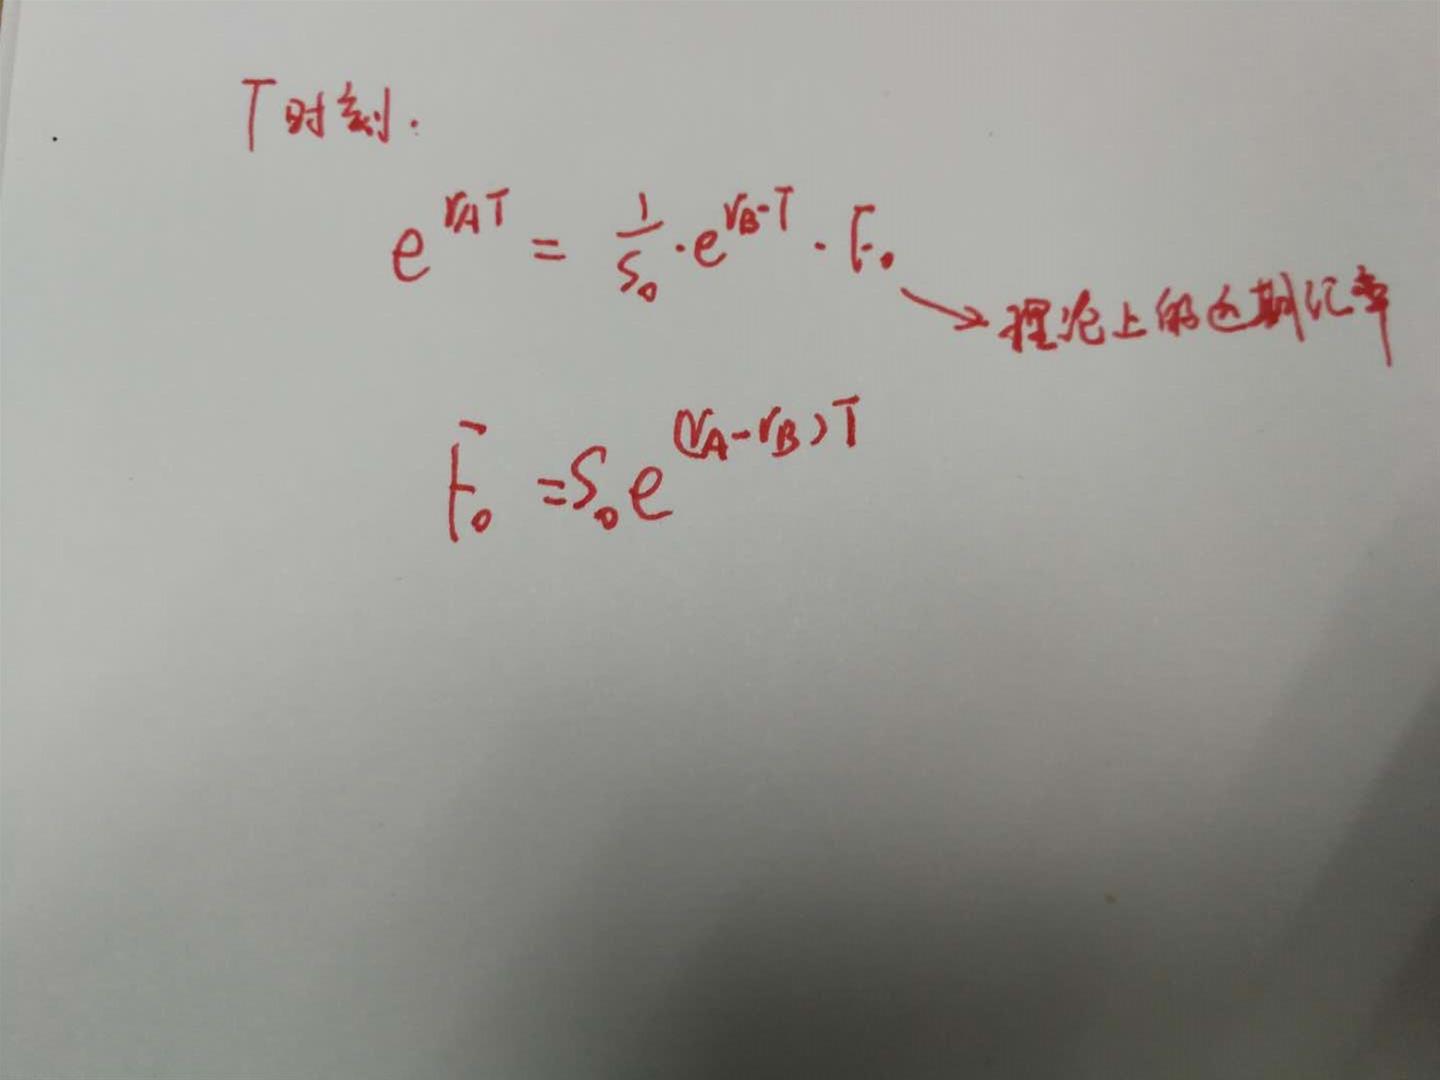 T时刻.
e^{r_A T} = \frac{1}{S_0} · e^{r_B · T} · F_0
→ 理论上的远期汇率
F_0 = S_0 e^{(r_A - r_B)T}